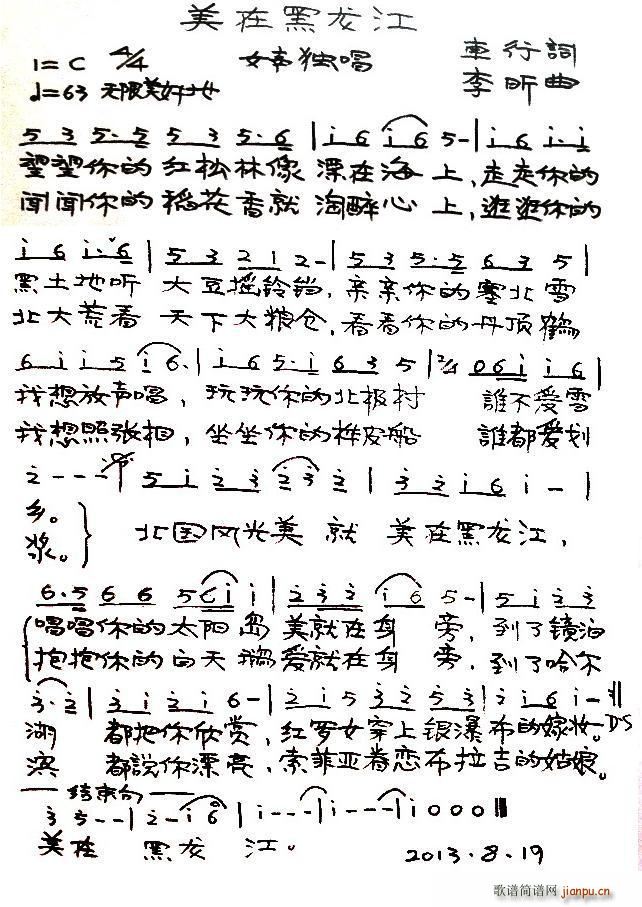 美在黑龙江
1=C 4/4 女声独唱 車行詞
♩=63 无限美好地 李昕曲
5 3 5·5 5 3 5·6 | i 6 i 6 5 - | i 6 i·i
望望你的红松林像 漂在海上,走走你的
闻闻你的稻花香就 淘醉心上,逛逛你的
i 6 i·6 | 5 3 2 1 2 - | 5 3 5·5 6 3 5 |
黑土地听 大豆摇铃铛,亲亲你的塞北雪
北大荒看 天下大粮仓,看看你的丹顶鹤
6 i i 5 i 6· | i 6 5·i 6 3 5 | 2/4 0 6 i i 6 |
我想放声唱,玩玩你的北极村 誰不爱雪
我想照张相,坐坐你的桦皮船 誰都爱划
2 - - - | 5 i 2 3 2 3 2 | 3 2 i 6 i - |
乡。
浆。
北国风光美 就 美在黑龙江,
6·5 6 6 5 6 i i | 2 3 2 i 6 5 - | 5 i 2 3
唱唱你的太阳岛 美就在身旁,到了镜泊
抱抱你的白天鹅 爱就在身旁,到了哈尔
3·2 | 3 i 2 i 6 - | 2 i 5 3 2 5 3 | 2 i 6 i - DS
湖 都把你欣赏,红罗女穿上银瀑布的嫁妆。
滨 都説你漂亮,索菲亚眷恋布拉吉的姑娘。
结束句
3 5 - - | 2 - i 6 | i - - - | i - - - | i 0 0 0
美在 黑龙 江。
2013·8·19
歌谱简谱网 jianpu.cn